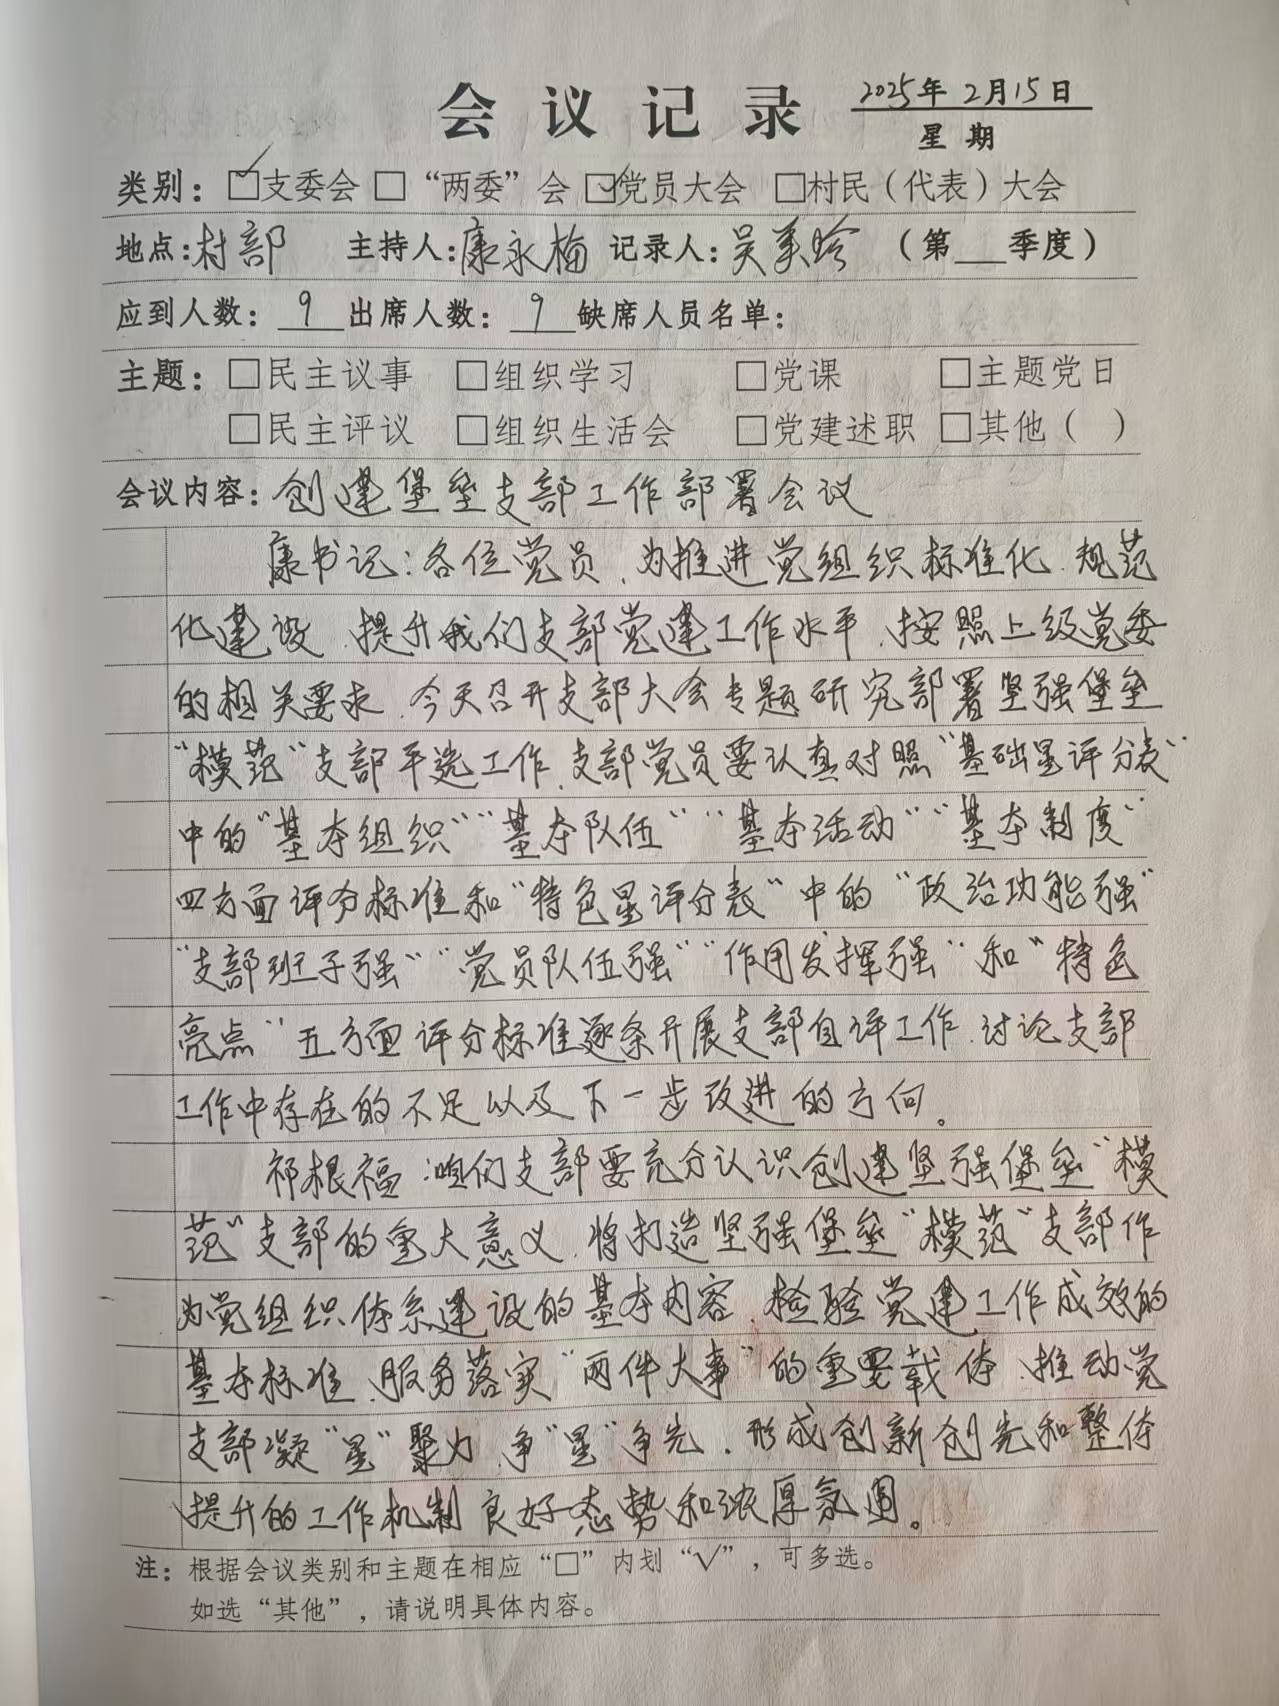 会议记录 2025年2月15日
星期
类别：☑支委会 □“两委”会 ☑党员大会 □村民（代表）大会
地点：村部 主持人：康永梅 记录人：吴美玲 （第___季度）
应到人数：9 出席人数：9 缺席人员名单：
主题：□民主议事 □组织学习 □党课 □主题党日
□民主评议 □组织生活会 □党建述职 □其他（ ）
会议内容：创建堡垒支部工作部署会议
康书记：各位党员，为推进党组织标准化、规范
化建设，提升我们支部党建工作水平，按照上级党委
的相关要求，今天召开支部大会专题研究部署坚强堡垒
“模范”支部评选工作，支部党员要认真对照“基础星评分表”
中的“基本组织”“基本队伍”“基本活动”“基本制度”
四方面评分标准和“特色星评分表”中的“政治功能强”
“支部班子强”“党员队伍强”“作用发挥强”和“特色
亮点”五方面评分标准逐条开展支部自评工作，讨论支部
工作中存在的不足以及下一步改进的方向。
祁根福：咱们支部要充分认识创建坚强堡垒“模
范”支部的重大意义，将打造坚强堡垒“模范”支部作
为党组织体系建设的基本内容，检验党建工作成效的
基本标准，服务落实“两件大事”的重要载体，推动党
支部凝“星”聚力，争“星”争先，形成创新创先和整体
提升的工作机制良好态势和浓厚氛围。
注：根据会议类别和主题在相应“□”内划“√”，可多选。
如选“其他”，请说明具体内容。